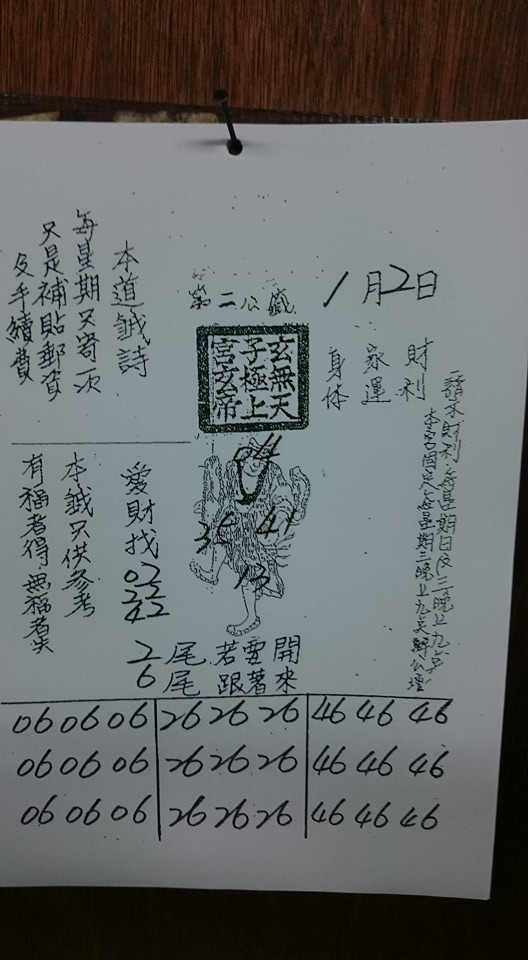 1月2日
財利
家運
身体
本宮固定每星期三晚上九点辦公壇
第二公籤
天上帝
無極玄
玄子宮
04
35 41
13
本道籤詩
每星期只寄一次
只是補貼郵資
及手續費
愛財找
02
22
42
本籤只供參考
有福者得.無福者失
2尾若要開
6尾跟著來
06 06 06 26 26 26 46 46 46
06 06 06 26 26 26 46 46 46
06 06 06 26 26 26 46 46 46